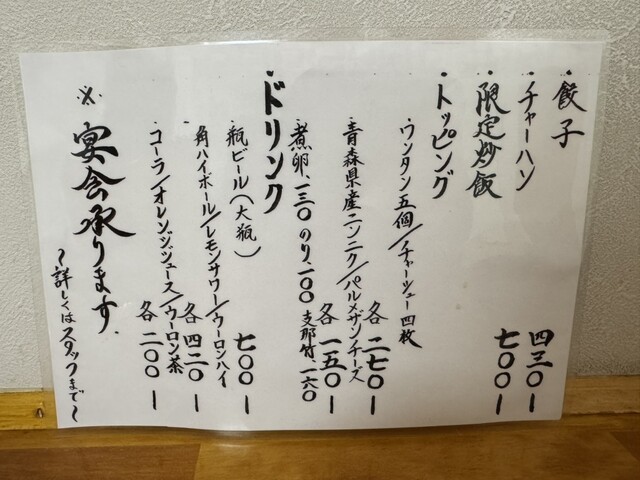 ・餃子 四三〇ー
・チャーハン
・限定炒飯 七〇〇ー
・トッピング
ウンタン五個/チャーシュー四枚
各 二七〇ー
青森県産ニンニク/パルメザンチーズ
各 一五〇ー
煮卵、一三〇 のり、一〇〇 支那竹、一六〇
・ドリンク
瓶ビール(大瓶) 七〇〇ー
角ハイボール/レモンサワー/ウーロンハイ
各 四二〇ー
コーラ/オレンジジュース/ウーロン茶
各 二〇〇ー
※宴会承ります.
〜詳しくはスタッフまで〜